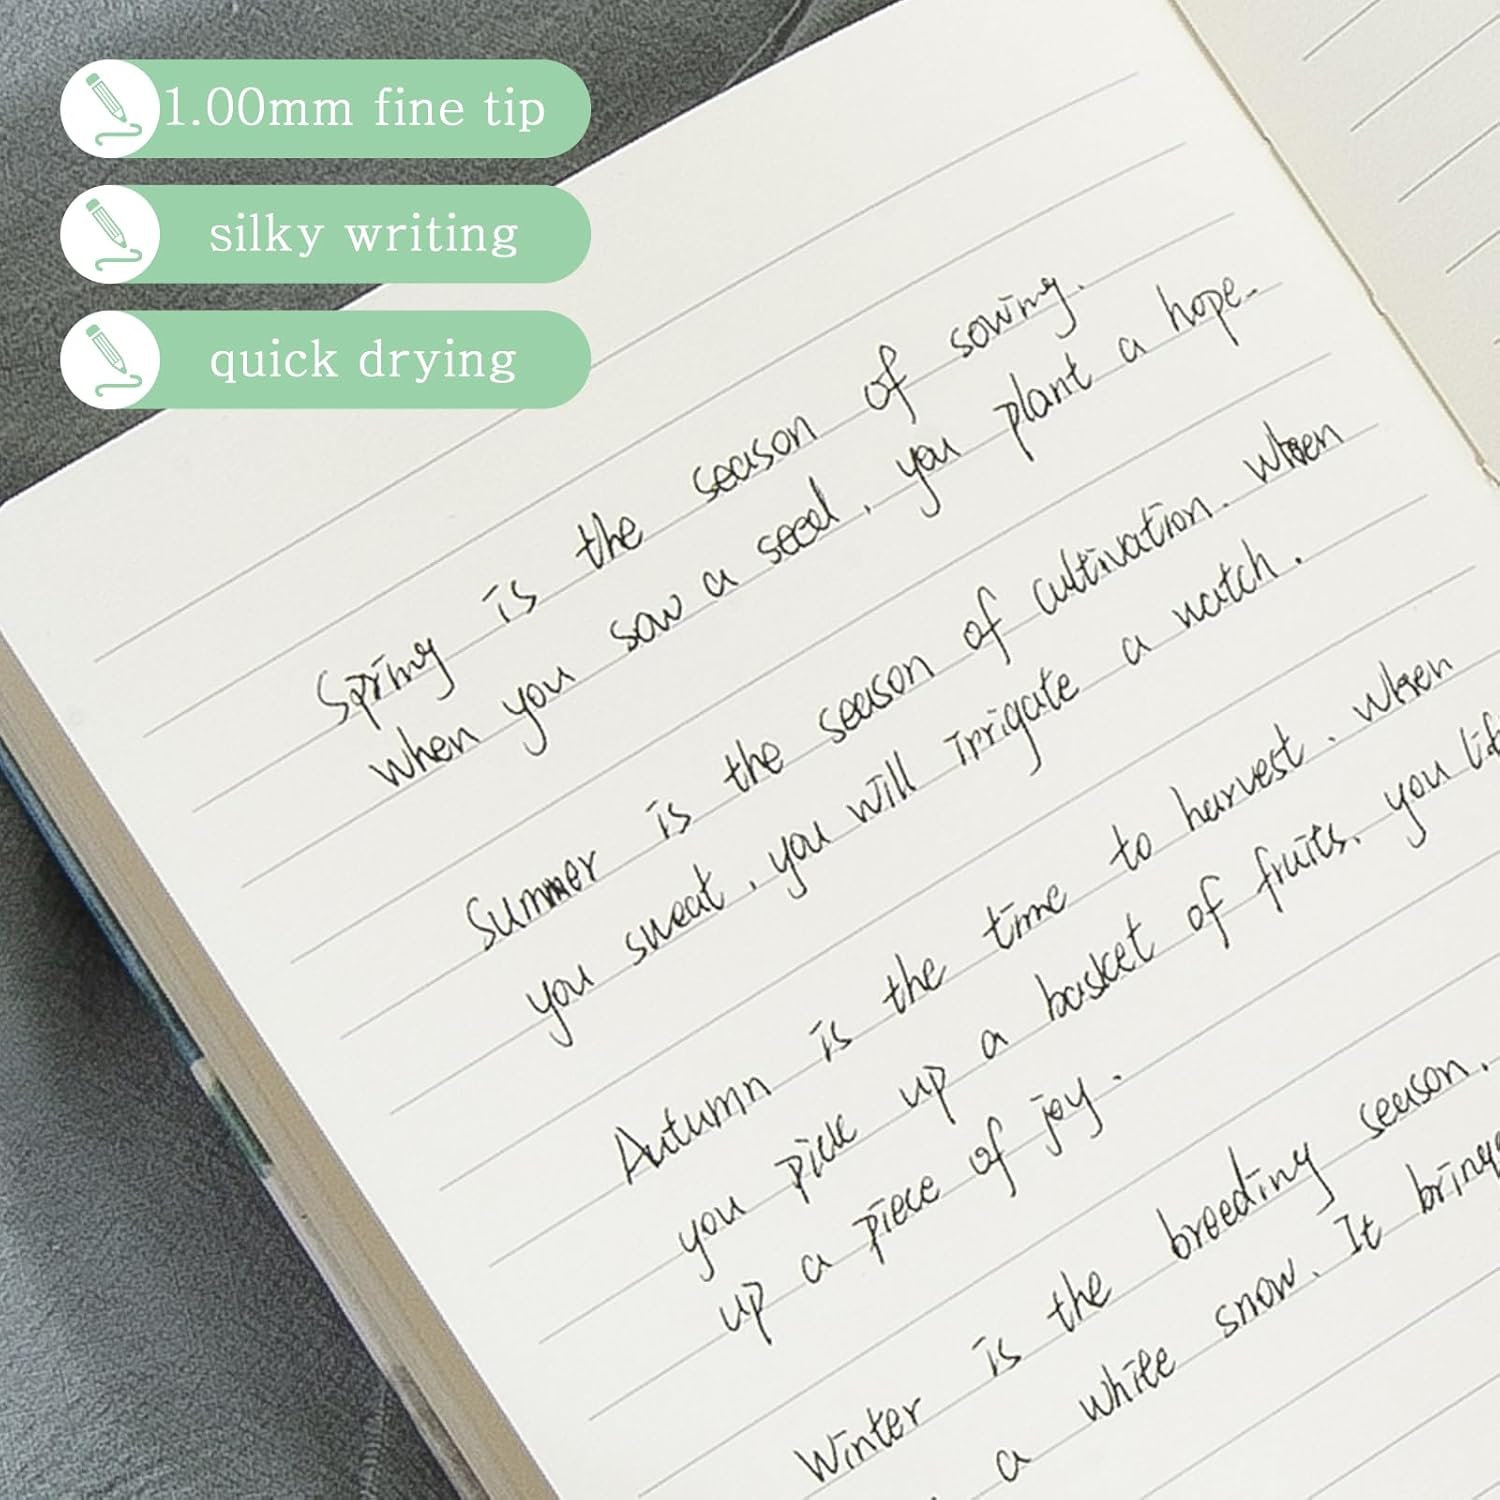 1.00mm fine tip
silky writing
quick drying
Spring is the season of sowing.
When you sow a seed, you plant a hope.
Summer is the season of cultivation. When
you sweat, you will irrigate a natch.
Autumn is the time to harvest. When
you pick up a basket of fruits, you
up a piece of joy.
Winter is the breeding season.
a while snow. It brings